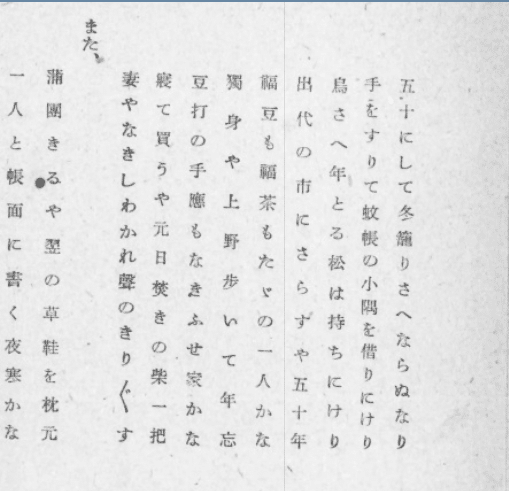 五十にして冬籠りさへならぬなり
手をすりて蚊帳の小隅を借りにけり
鳥さへ年とる松は持ちにけり
出代の市にさらすや五十年
福豆も福茶もたゞの一人かな
獨身や上野歩いて年忘
豆打の手應もなきふせ家かな
寢て買うや元日焚きの柴一把
妻やなきしわかれ聲のきり〲す
また、
蒲團きるや翌の草鞋を枕元
一人と帳面に書く夜寒かな